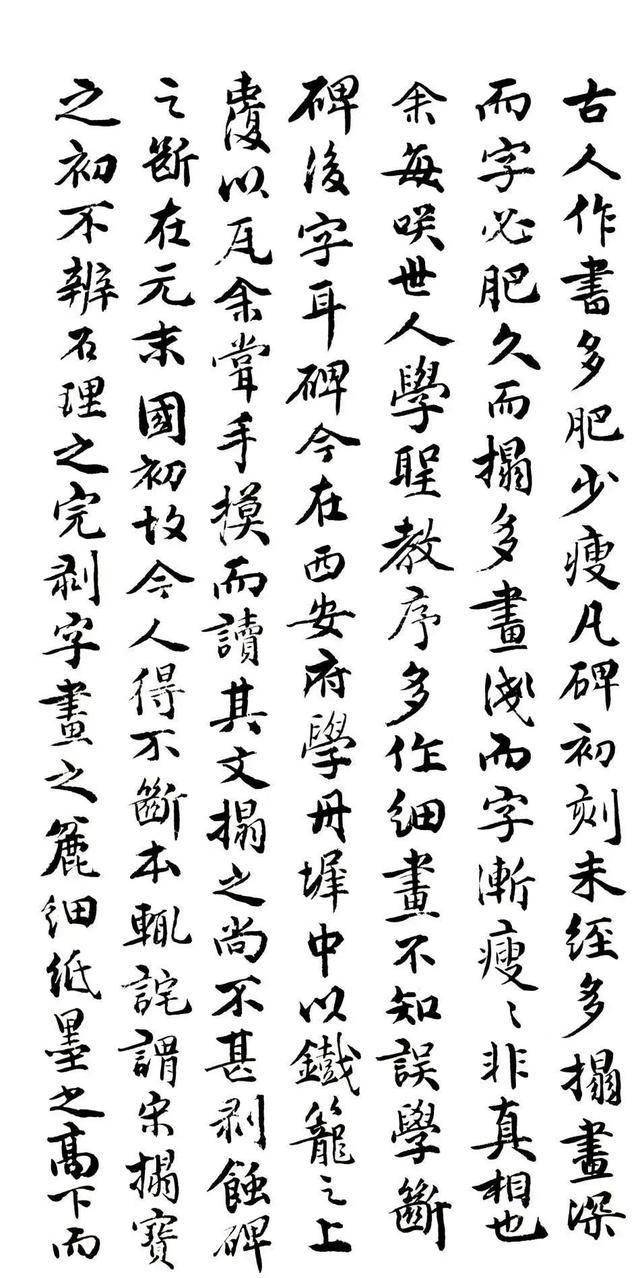 古人作書多肥少瘦凡碑初刻未經多搨畫深
而字必肥久而搨多畫淺而字漸瘦〻非真相也
余每咲世人學聖教序多作細畫不知誤學斷
碑後字耳碑今在西安府學丹墀中以鐵籠之上
覆以瓦余嘗手摸而讀其文搨之尚不甚剥蝕碑
之斷在元末國初故今人得不斷本輒詫謂宋搨寶
之初不辨石理之完剥字畫之麄細紙墨之高下而